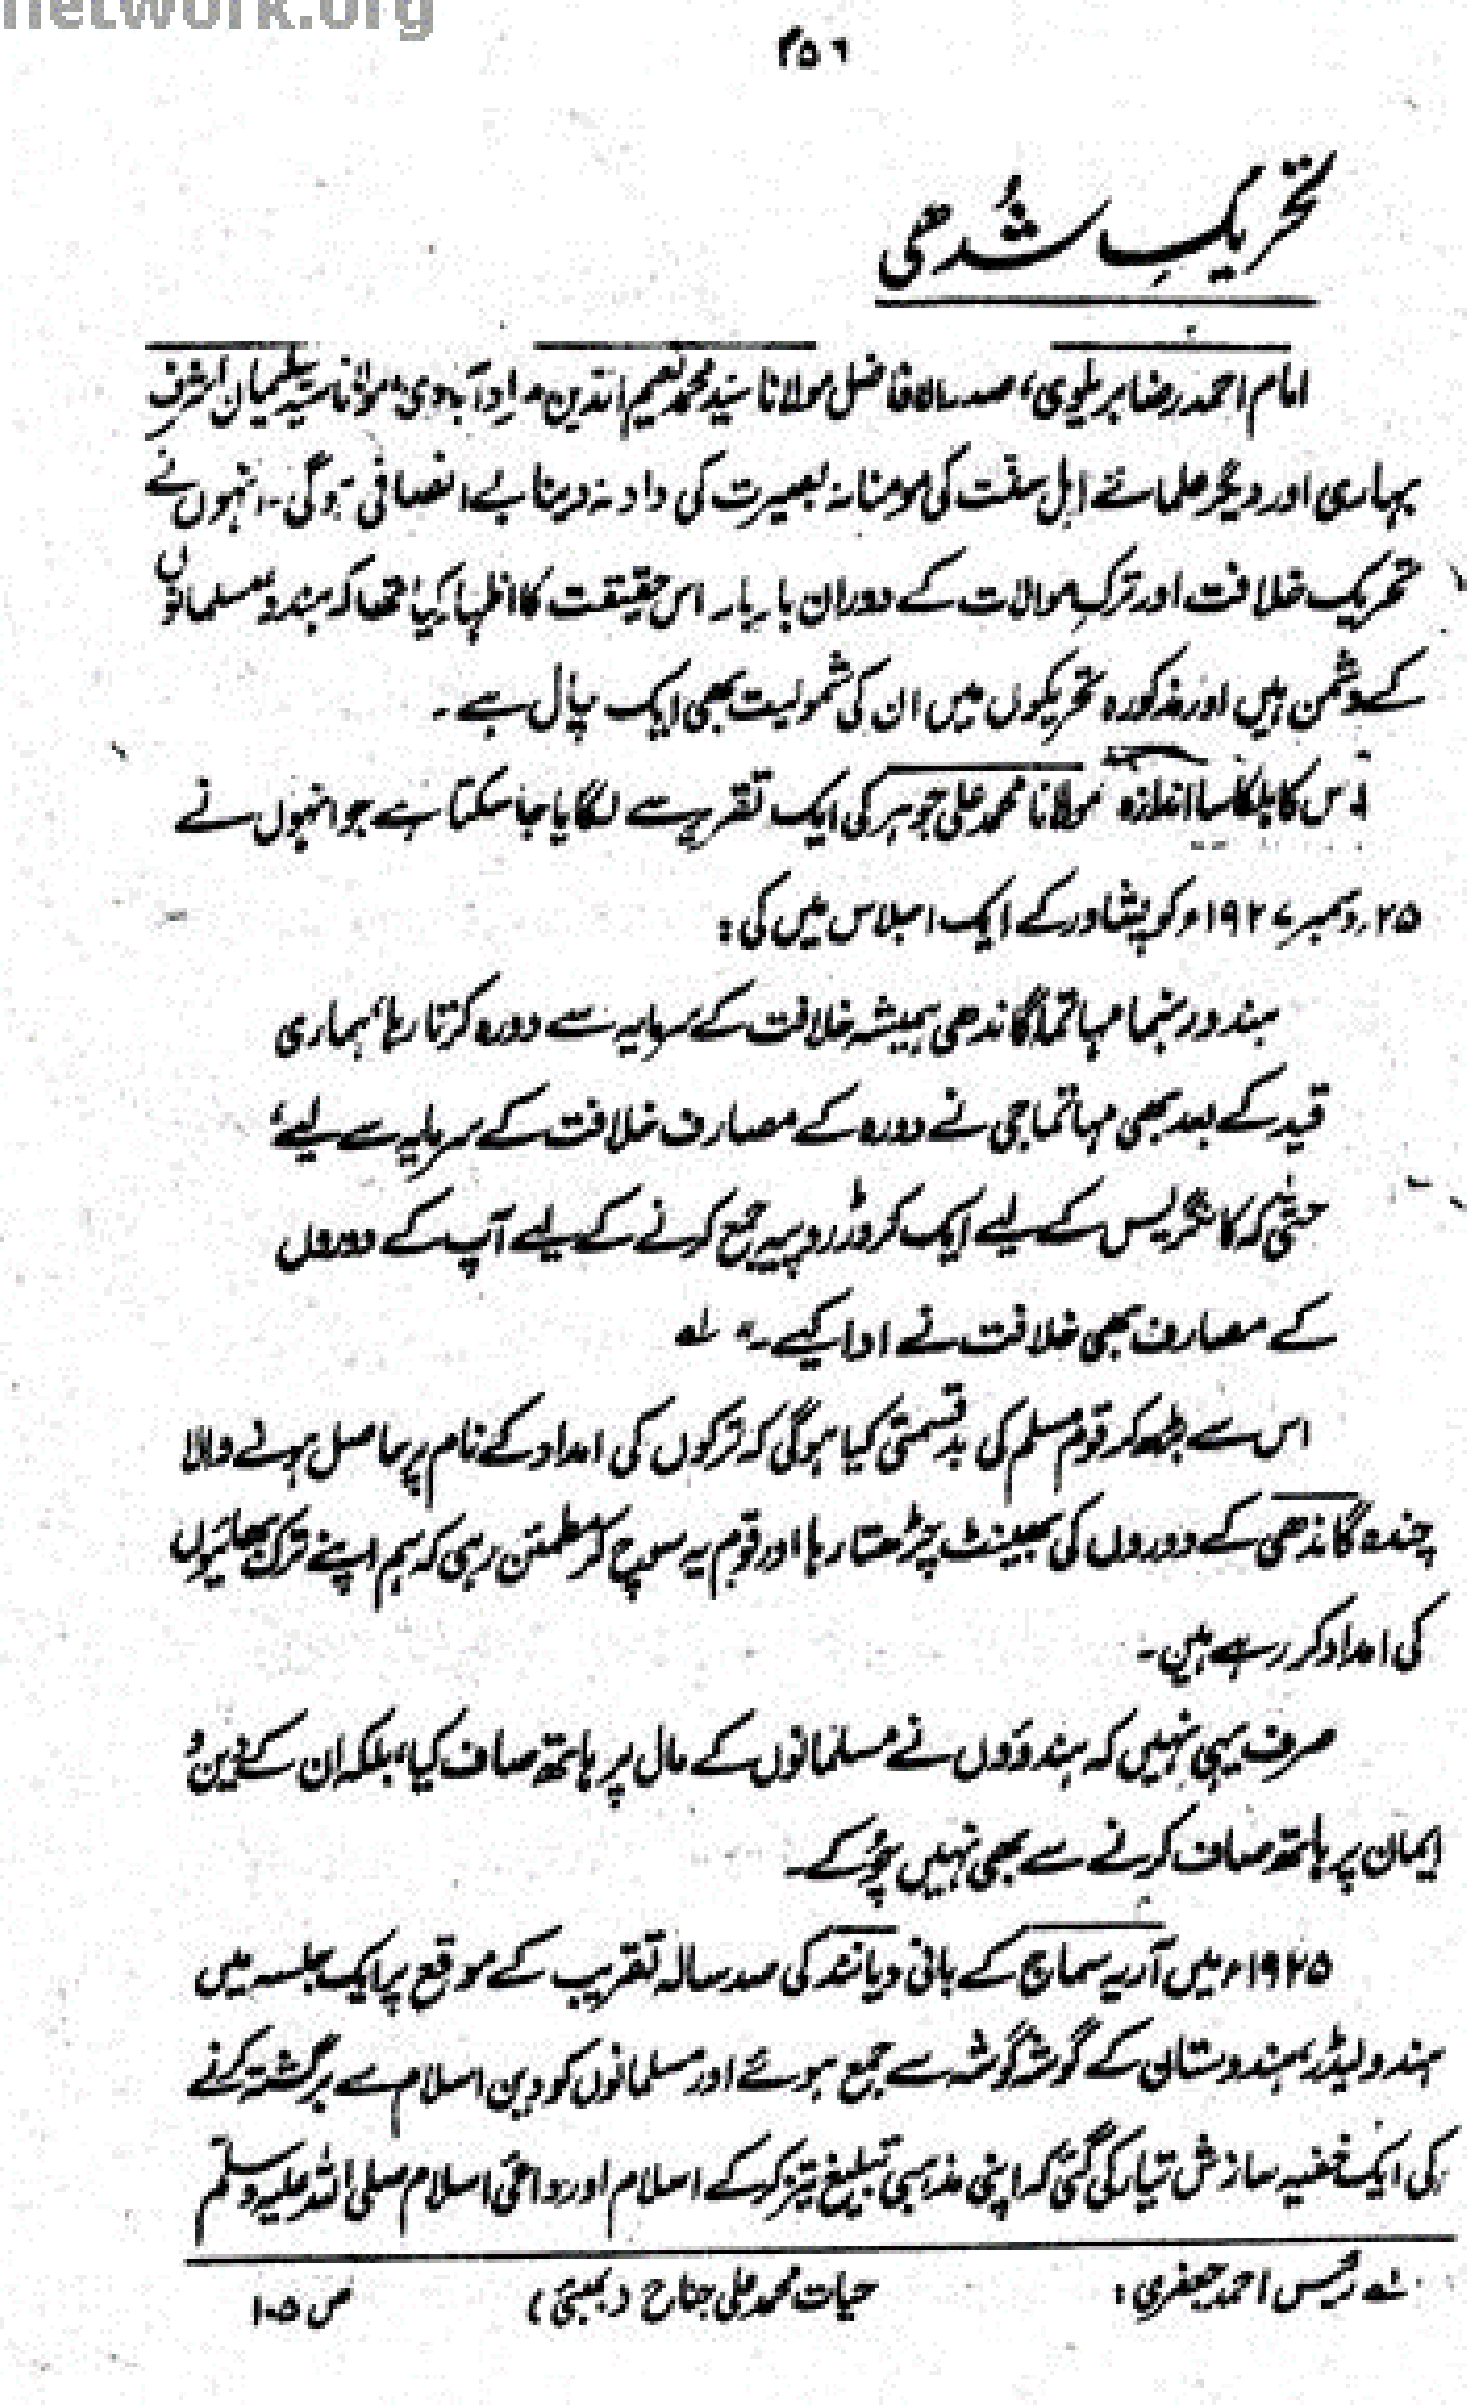 network.org
۴۵۶
تحریکِ شُدھی
امام احمد رضا بریلوی، صدر الافاضل مولانا سید محمد نعیم الدین مراد آبادی، مولانا سید سلیمان اشرف
بہاری اور دیگر علمائے اہل سنت کی مومنانہ بصیرت کی داد نہ دینا بے انصافی ہوگی۔ انہوں نے
تحریک خلافت اور ترکِ موالات کے دوران بار بار اس حقیقت کا اظہار کیا تھا کہ ہندو مسلمانوں
کے دشمن ہیں اور مذکورہ تحریکوں میں ان کی شمولیت بھی ایک چال ہے۔
اس کا ہلکا سا اندازہ مولانا محمد علی جوہر کی ایک تقریر سے لگایا جا سکتا ہے جو انہوں نے
۲۵؍دسمبر ۱۹۲۷ء کو پشاور کے ایک اجلاس میں کی:
ہندو رہنما مہاتما گاندھی ہمیشہ خلافت کے سرمایہ سے دورہ کرتا رہا، ہماری
قید کے بعد بھی مہاتما جی نے دورہ کے مصارف خلافت کے سرمایہ سے لیے،
حتیٰ کہ کانگریس کے لیے ایک کروڑ روپیہ جمع کرنے کے لیے آپ کے دوروں
کے مصارف بھی خلافت نے ادا کیے۔" لہ
اس سے بڑھ کر قوم مسلم کی بدقسمتی کیا ہوگی کہ ترکوں کی امداد کے نام پر حاصل ہونے والا
چندہ گاندھی کے دوروں کی بھینٹ چڑھتا رہا اور قوم یہ سوچ کر مطمئن رہی کہ ہم اپنے ترک بھائیوں
کی امداد کر رہے ہیں۔
صرف یہی نہیں کہ ہندوؤں نے مسلمانوں کے مال پر ہاتھ صاف کیا، بلکہ ان کے دین و
ایمان پر ہاتھ صاف کرنے سے بھی نہیں چُوکے۔
۱۹۲۵ء میں آریہ سماج کے بانی دیانند کی صد سالہ تقریب کے موقع پر ایک جلسہ میں
ہندو لیڈر ہندوستان کے گوشہ گوشہ سے جمع ہوئے اور مسلمانوں کو دین اسلام سے برگشتہ کرنے
کی ایک خفیہ سازش تیار کی گئی کہ اپنی مذہبی تبلیغ تیز کر کے اسلام اور داعیٔ اسلام صلی اللہ علیہ وسلم
لہ رئیس احمد جعفری: حیات محمد علی جناح (بمبئی) ص ۱۰۵